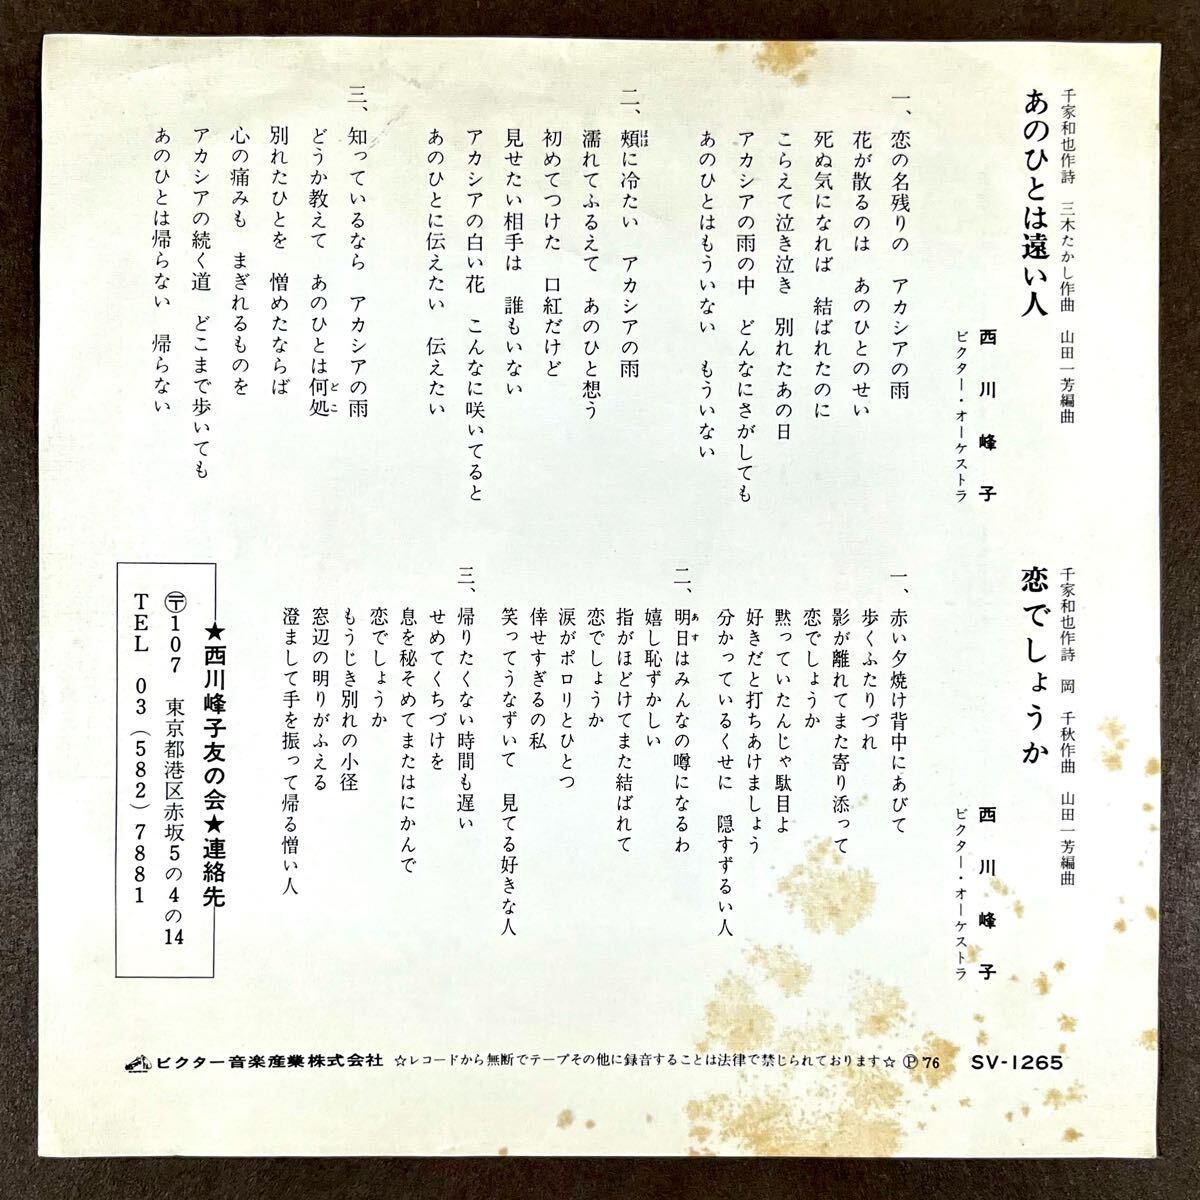 千家和也作詩　三木たかし作曲　山田一芳編曲
あのひとは遠い人
西川峰子
ビクター・オーケストラ
一、恋の名残りの　アカシアの雨
花が散るのは　あのひとのせい
死ぬ気になれば　結ばれたのに
こらえて泣き泣き　別れたあの日
アカシアの雨の中　どんなにさがしても
あのひとはもういない　もういない
二、頬に冷たい　アカシアの雨
ほほ
濡れてふるえて　あのひと想う
初めてつけた　口紅だけど
見せたい相手は　誰もいない
アカシアの白い花　こんなに咲いてると
あのひとに伝えたい　伝えたい
三、知っているなら　アカシアの雨
どうか教えて　あのひとは何処
どこに
別れたひとを　憎めたならば
心の痛みも　まぎれるものを
アカシアの続く道　どこまで歩いても
あのひとは帰らない　帰らない
千家和也作詩　岡　千秋作曲　山田一芳編曲
恋でしょうか
西川峰子
ビクター・オーケストラ
一、赤い夕焼け背中にあびて
歩くふたりづれ
影が離れてまた寄り添って
恋でしょうか
黙っていたんじゃ駄目よ
好きだと打ちあけましょう
分かっているくせに　隠すずるい人
二、明日はみんなの噂になるわ
あす
嬉し恥ずかしい
指がほどけてまた結ばれて
恋でしょうか
涙がポロリとひとつ
倖せすぎるの私
笑ってうなずいて　見てる好きな人
三、帰りたくない時間も遅い
せめてくちづけを
息を秘そめてまたはにかんで
恋でしょうか
もうじき別れの小径
窓辺の明りがふえる
澄まして手を振って帰る憎い人
★西川峰子友の会★連絡先
〶107　東京都港区赤坂5の4の14
TEL　03（582）7881
ビクター音楽産業株式会社　☆レコードから無断でテープその他に録音することは法律で禁じられております☆　Ⓟ76　SV-1265